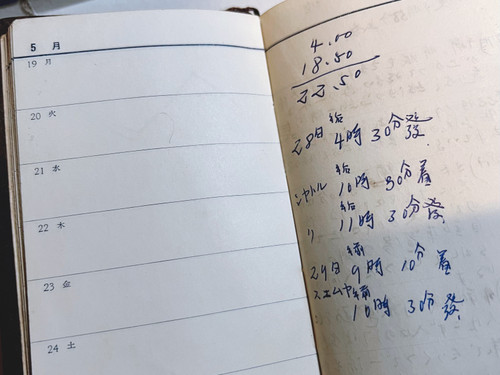 5 月
19 月
20 火
21 水
22 木
23 金
24 土
4.00
18.50
22.50
28日 4時 30分發
シヤトル 10時 30分着
〃 11時 30分發
29日 9時 10分着
スエムヤ 10時 30分發